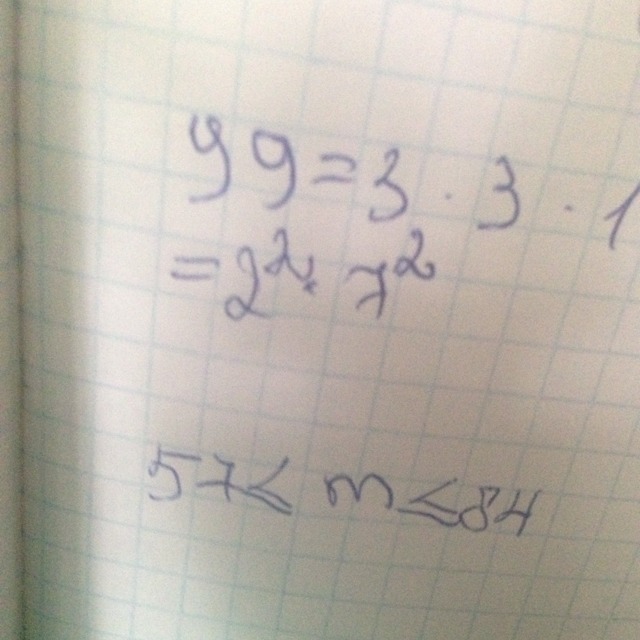 99 = 3 · 3 · 1
= 2² · 7²
57 < m < 84